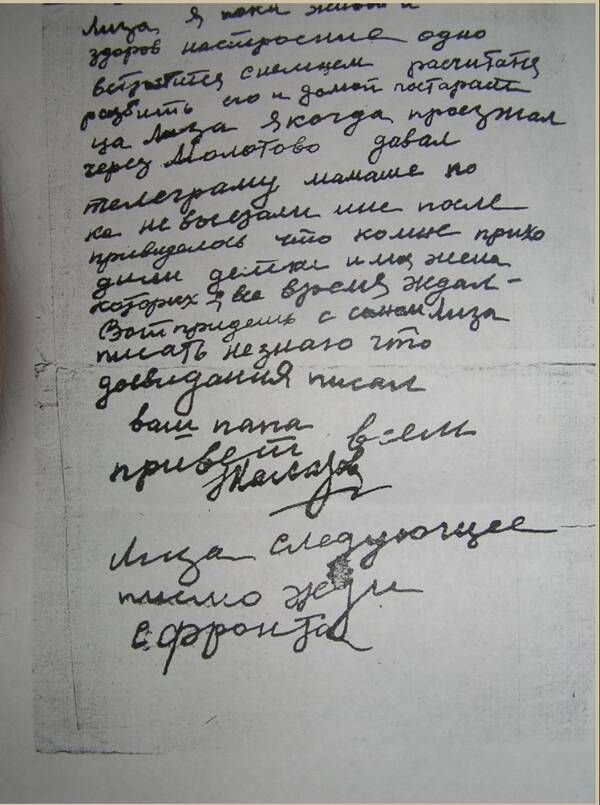 Лиза, я пока живой и
здоров настроение одно
встретится снемцем расчитатся
разбить его и домой постарает
ца Лиза я когда проезжал
через Молотово давал
телеграму мамаше по
ке не выезжали мне после
привиделось что комне прихо
дили детки и моя жена
которих я все время ждал-
Вот придешь с сыном Лиза
писать незнаю что
досвидания писал
ваш папа
привет всем
Лиза следующее
писмо жди
с фронта